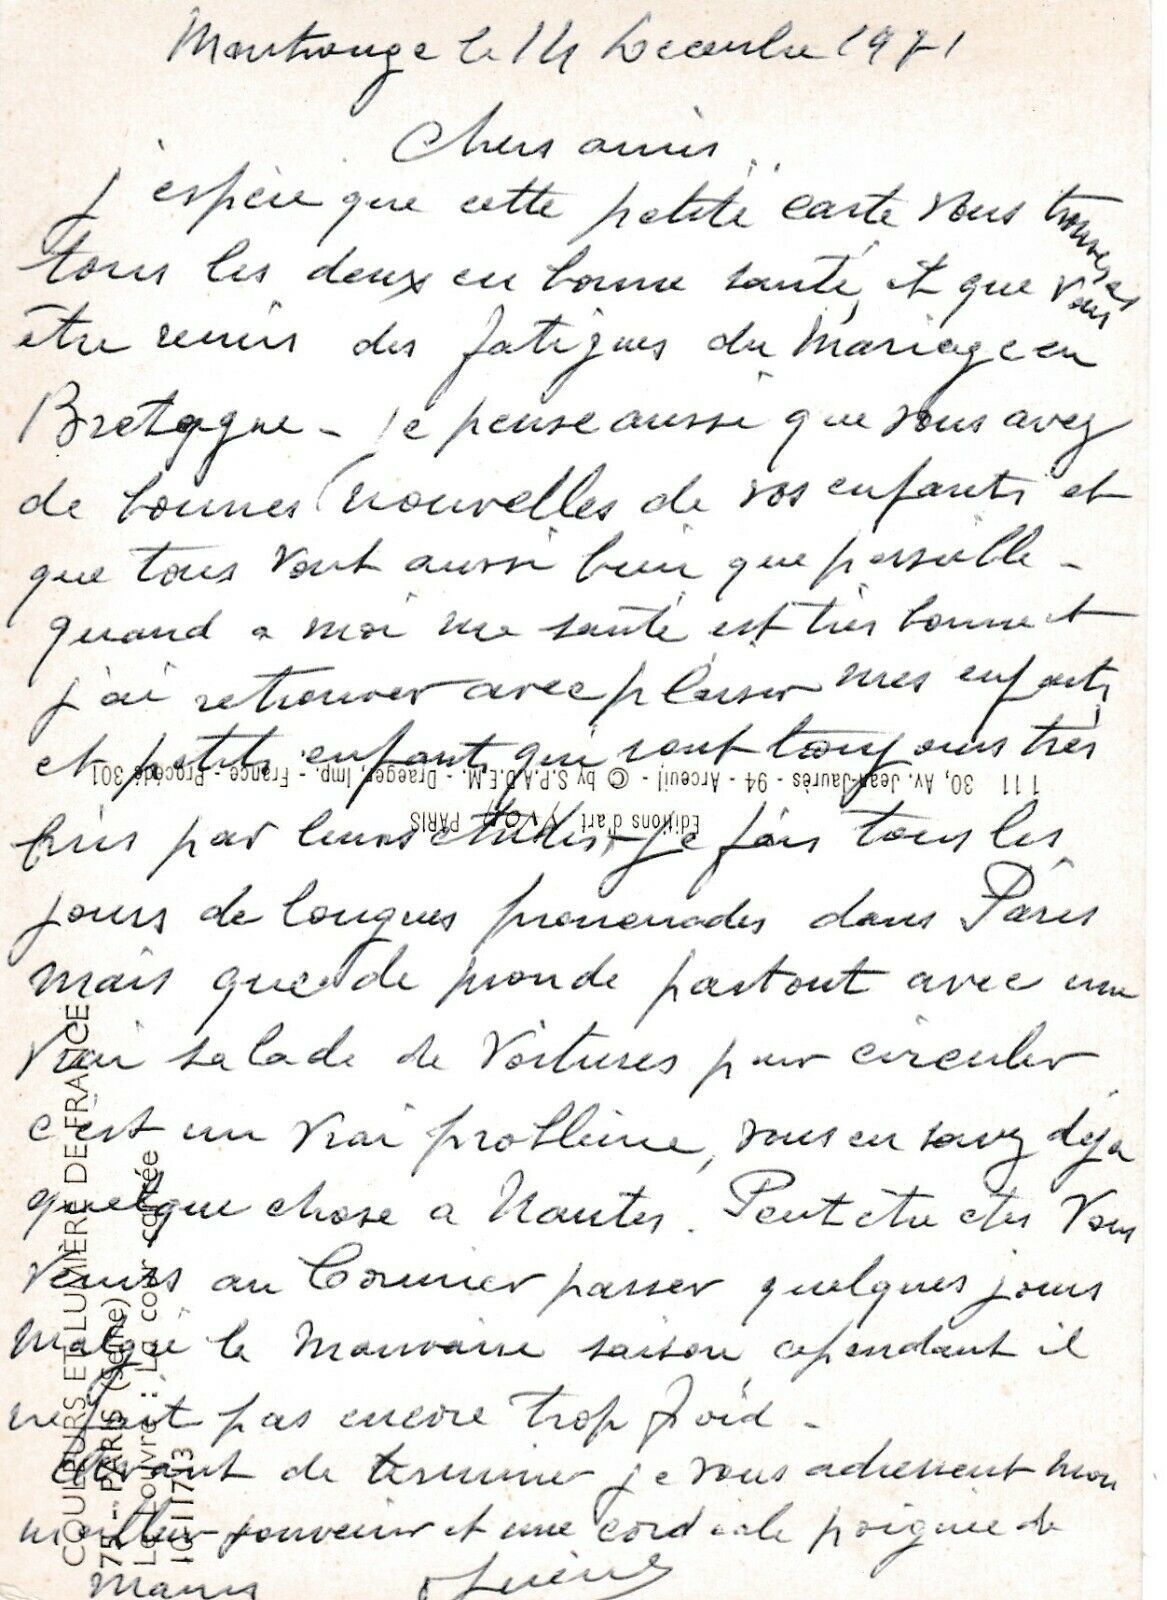 Montrouge le 14 Decembre 1971
Chers amis
j'espère que cette petite carte vous trouveras
tous les deux en bonne santé, et que vous
être remis des fatigues du Mariage en
Bretagne - je pense aussi que vous avez
de bonnes nouvelles de vos enfants et
que tous vont aussi bien que possible -
quand a moi ma santé est très bonne et
j'ai retrouver avec plaisir mes enfants
et petits enfants qui sont toujours très
111 30, Av. Jean-Jaurès - 94 - Arceuil - © by S.P.A.D.E.M. - Draeger, Imp. - France - Procédé 301
Editions d'art YVON PARIS
pris par leurs études, je fais tous les
jours de longues promenades dans Paris
mais que de monde partout avec une
vrai salade de voitures pour circuler
c'est un vrai problème, vous en savez déja
quelque chose a Nantes. Peut être etes vous
venus au passer quelques jours
malgré la mauvaise saison cependant il
ne fait pas encore trop froid -
Avant de terminer je vous adressent mon
meilleur souvenir et une cordiale poignée de
Mains
COULEURS ET LUMIÈRE DE FRANCE
75 - PARIS (Seine)
Le Louvre : La cour carrée
10 11713